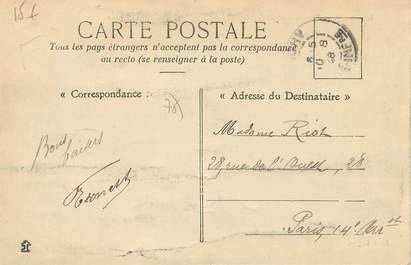 15 f
CARTE POSTALE
Tous les pays étrangers n'acceptent pas la correspondance
au recto (se renseigner à la poste)
« Correspondance :
« Adresse du Destinataire »
78)
Bons
baisers
Ernest
Madame Riot
28, rue de l'Ouest, 28
Paris, 14e Arr